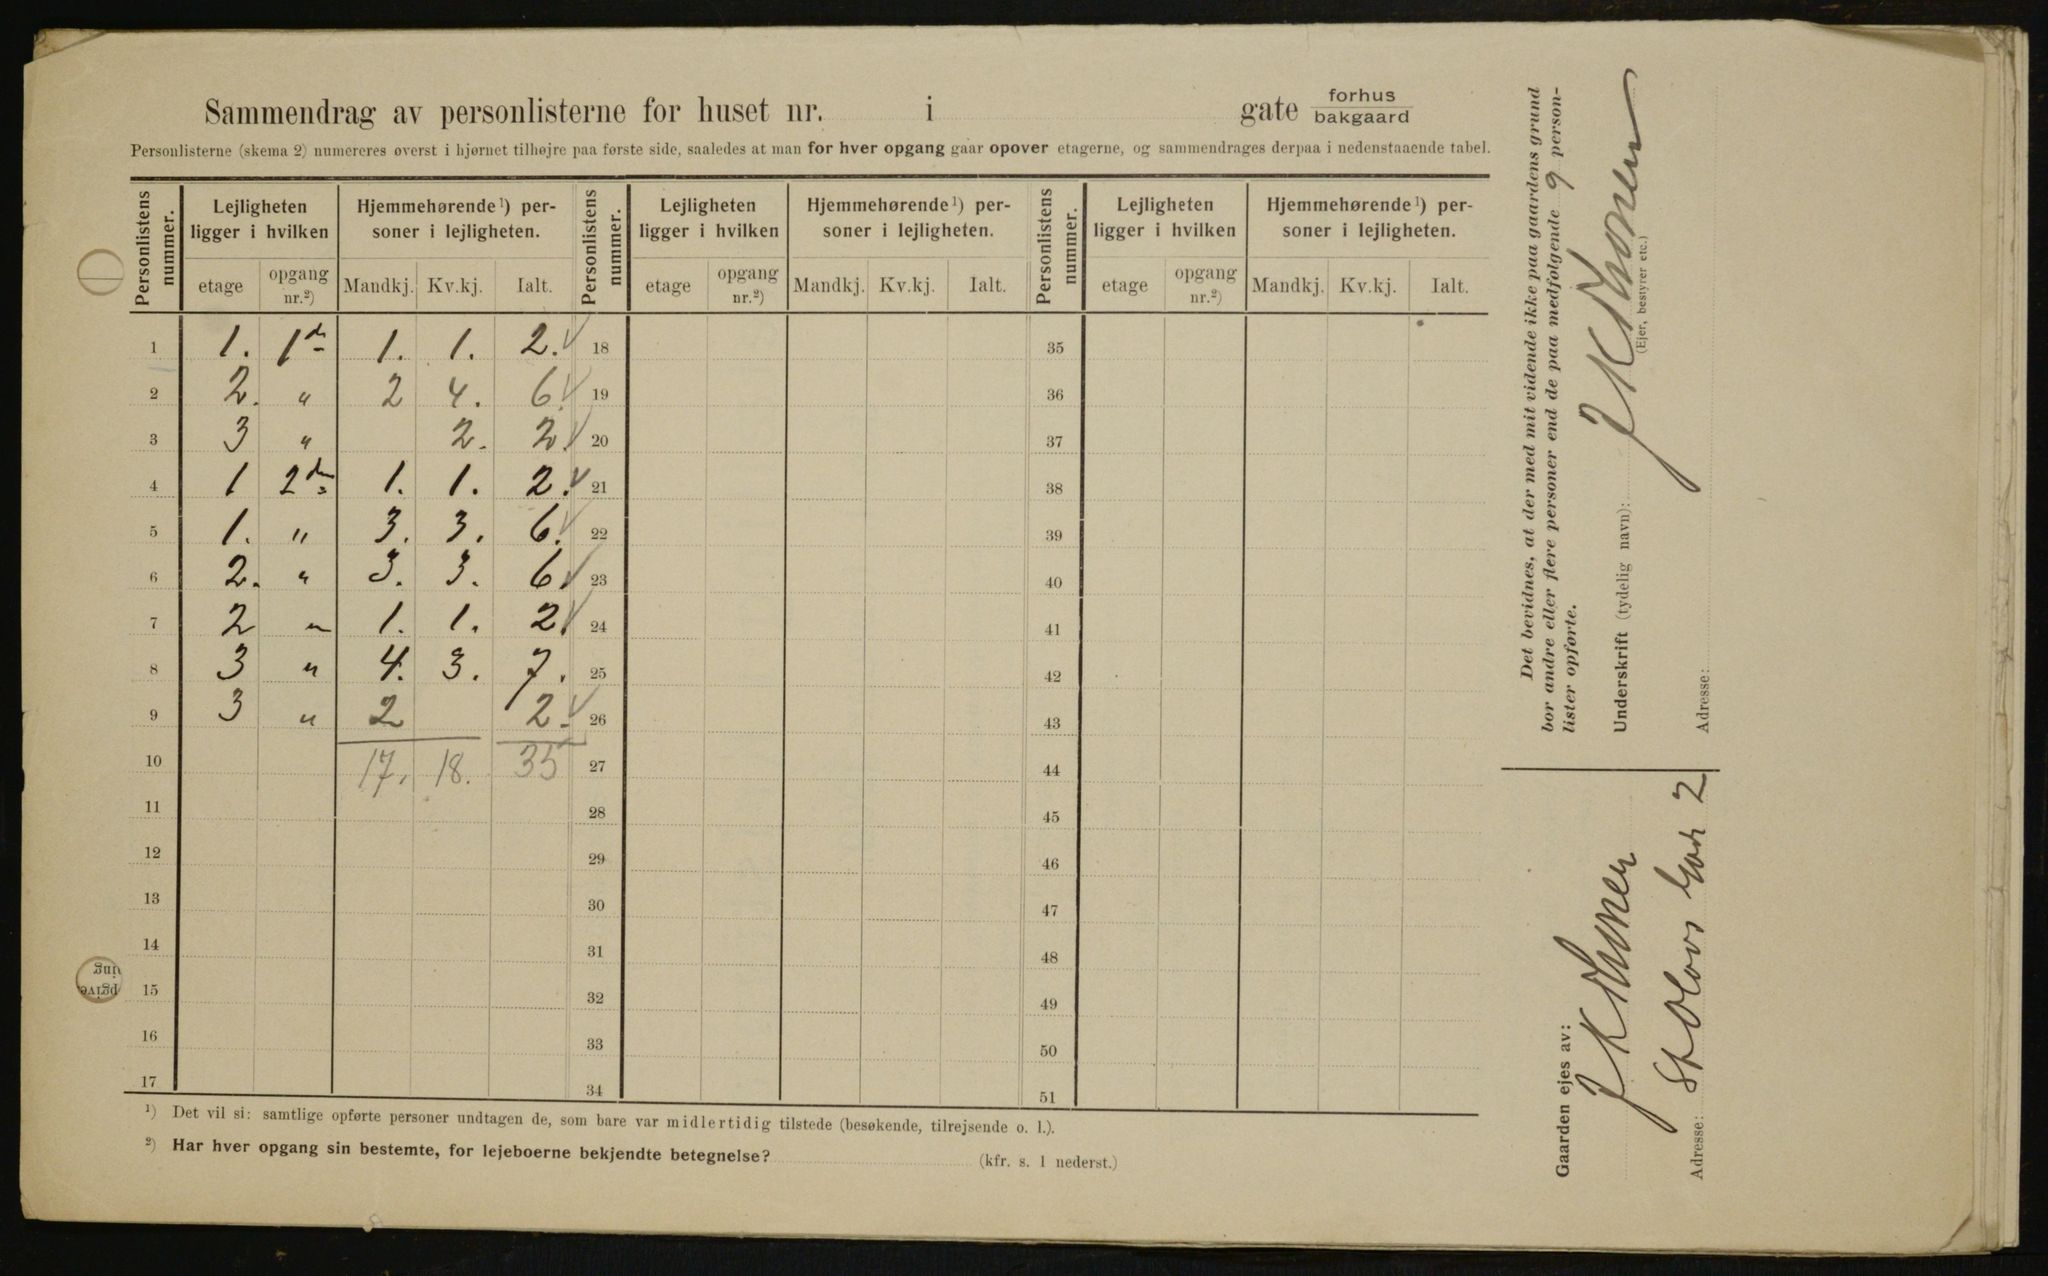 Sammendrag av personlisterne for huset nr. i gate forhus
bakgaard
Personlisterne (skema 2) numereres øverst i hjørnet tilhøjre paa første side, saaledes at man for hver opgang gaar opover etagerne, og sammendrages derpaa i nedenstaaende tabel.
Personlistens nummer. Lejligheten ligger i hvilken Hjemmehørende ¹) personer i lejligheten. Personlistens nummer. Lejligheten ligger i hvilken Hjemmehørende ¹) personer i lejligheten. Personlistens nummer. Lejligheten ligger i hvilken Hjemmehørende ¹) personer i lejligheten.
etage opgang nr.²) Mandkj. Kv.kj. Ialt. etage opgang nr.²) Mandkj. Kv.kj. Ialt. etage opgang nr.²) Mandkj. Kv.kj. Ialt.
1 1. 1 1. 1. 2. 18 35
2 2. " 2 4. 6. 19 36
3 3 " 2. 2. 20 37
4 1 2 1. 1. 2. 21 38
5 1. " 3. 3. 6. 22 39
6 2. " 3. 3. 6. 23 40
7 2 " 1. 1. 2. 24 41
8 3 " 4. 3. 7. 25 42
9 3 " 2 2. 26 43
10 17. 18. 35 27 44
11 28 45
12 29 46
13 30 47
14 31 48
15 32 49
16 33 50
17 34 51
¹) Det vil si: samtlige opførte personer undtagen de, som bare var midlertidig tilstede (besøkende, tilrejsende o. l.).
²) Har hver opgang sin bestemte, for lejeboerne bekjendte betegnelse? (kfr. s. 1 nederst.)
Det bevidnes, at der med mit vidende ikke paa gaardens grund
bor andre eller flere personer end de paa medfølgende 9 person-
lister opførte.
Underskrift (tydelig navn):
(Ejer, bestyrer etc.)
Adresse:
Gaarden ejes av:
Adresse: St Olavs 2
ing
pgive